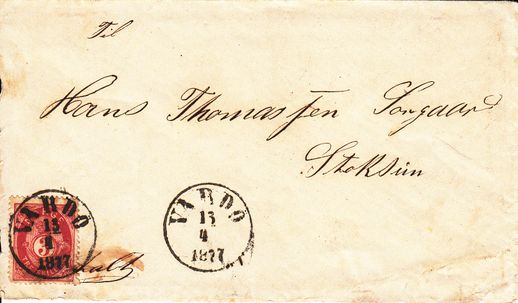 Til
Hans Thomassen Sorgaard
Stoksun
VARDÖ
13
4
1877
VARDÖ
13
4
1877
3